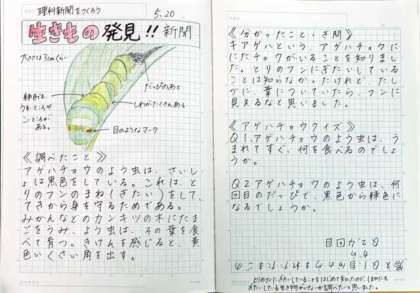 理科新聞をつくろう
5.20
生きもの発見!!新聞
たいちょうは3cmくらい
だっぴのあと
しわがたくさんある
緑色と
ところが
ある。
目のようなマーク
《調べたこと》
アゲハチョウのよう虫は、さいしょ
は黒色をしている。これは、と
りのフンのまねをしていて、
てきから身を守るためである。
みかんなどのカンキツの木にたま
ごをうみ、よう虫は、その葉を食
べて育つ。きけんを感じると、黄
色いくさい角を出す。
《分かったこと・ぎ問》
キアゲハという、アゲハチョウに
にたチョウがいることを知りまし
た。とりのフンにぎたいしている
ことは知らなかったけれど、たし
かに、葉についていたら、フンに
見えるなと思いました。
《アゲハチョウクイズ》
Q1.アゲハチョウのよう虫は、う
まれてすぐ、何を食べるのでしょ
うか。
Q2アゲハチョウのよう虫は、何
回目のだっぴで、黒色から緑色に
なるでしょうか。